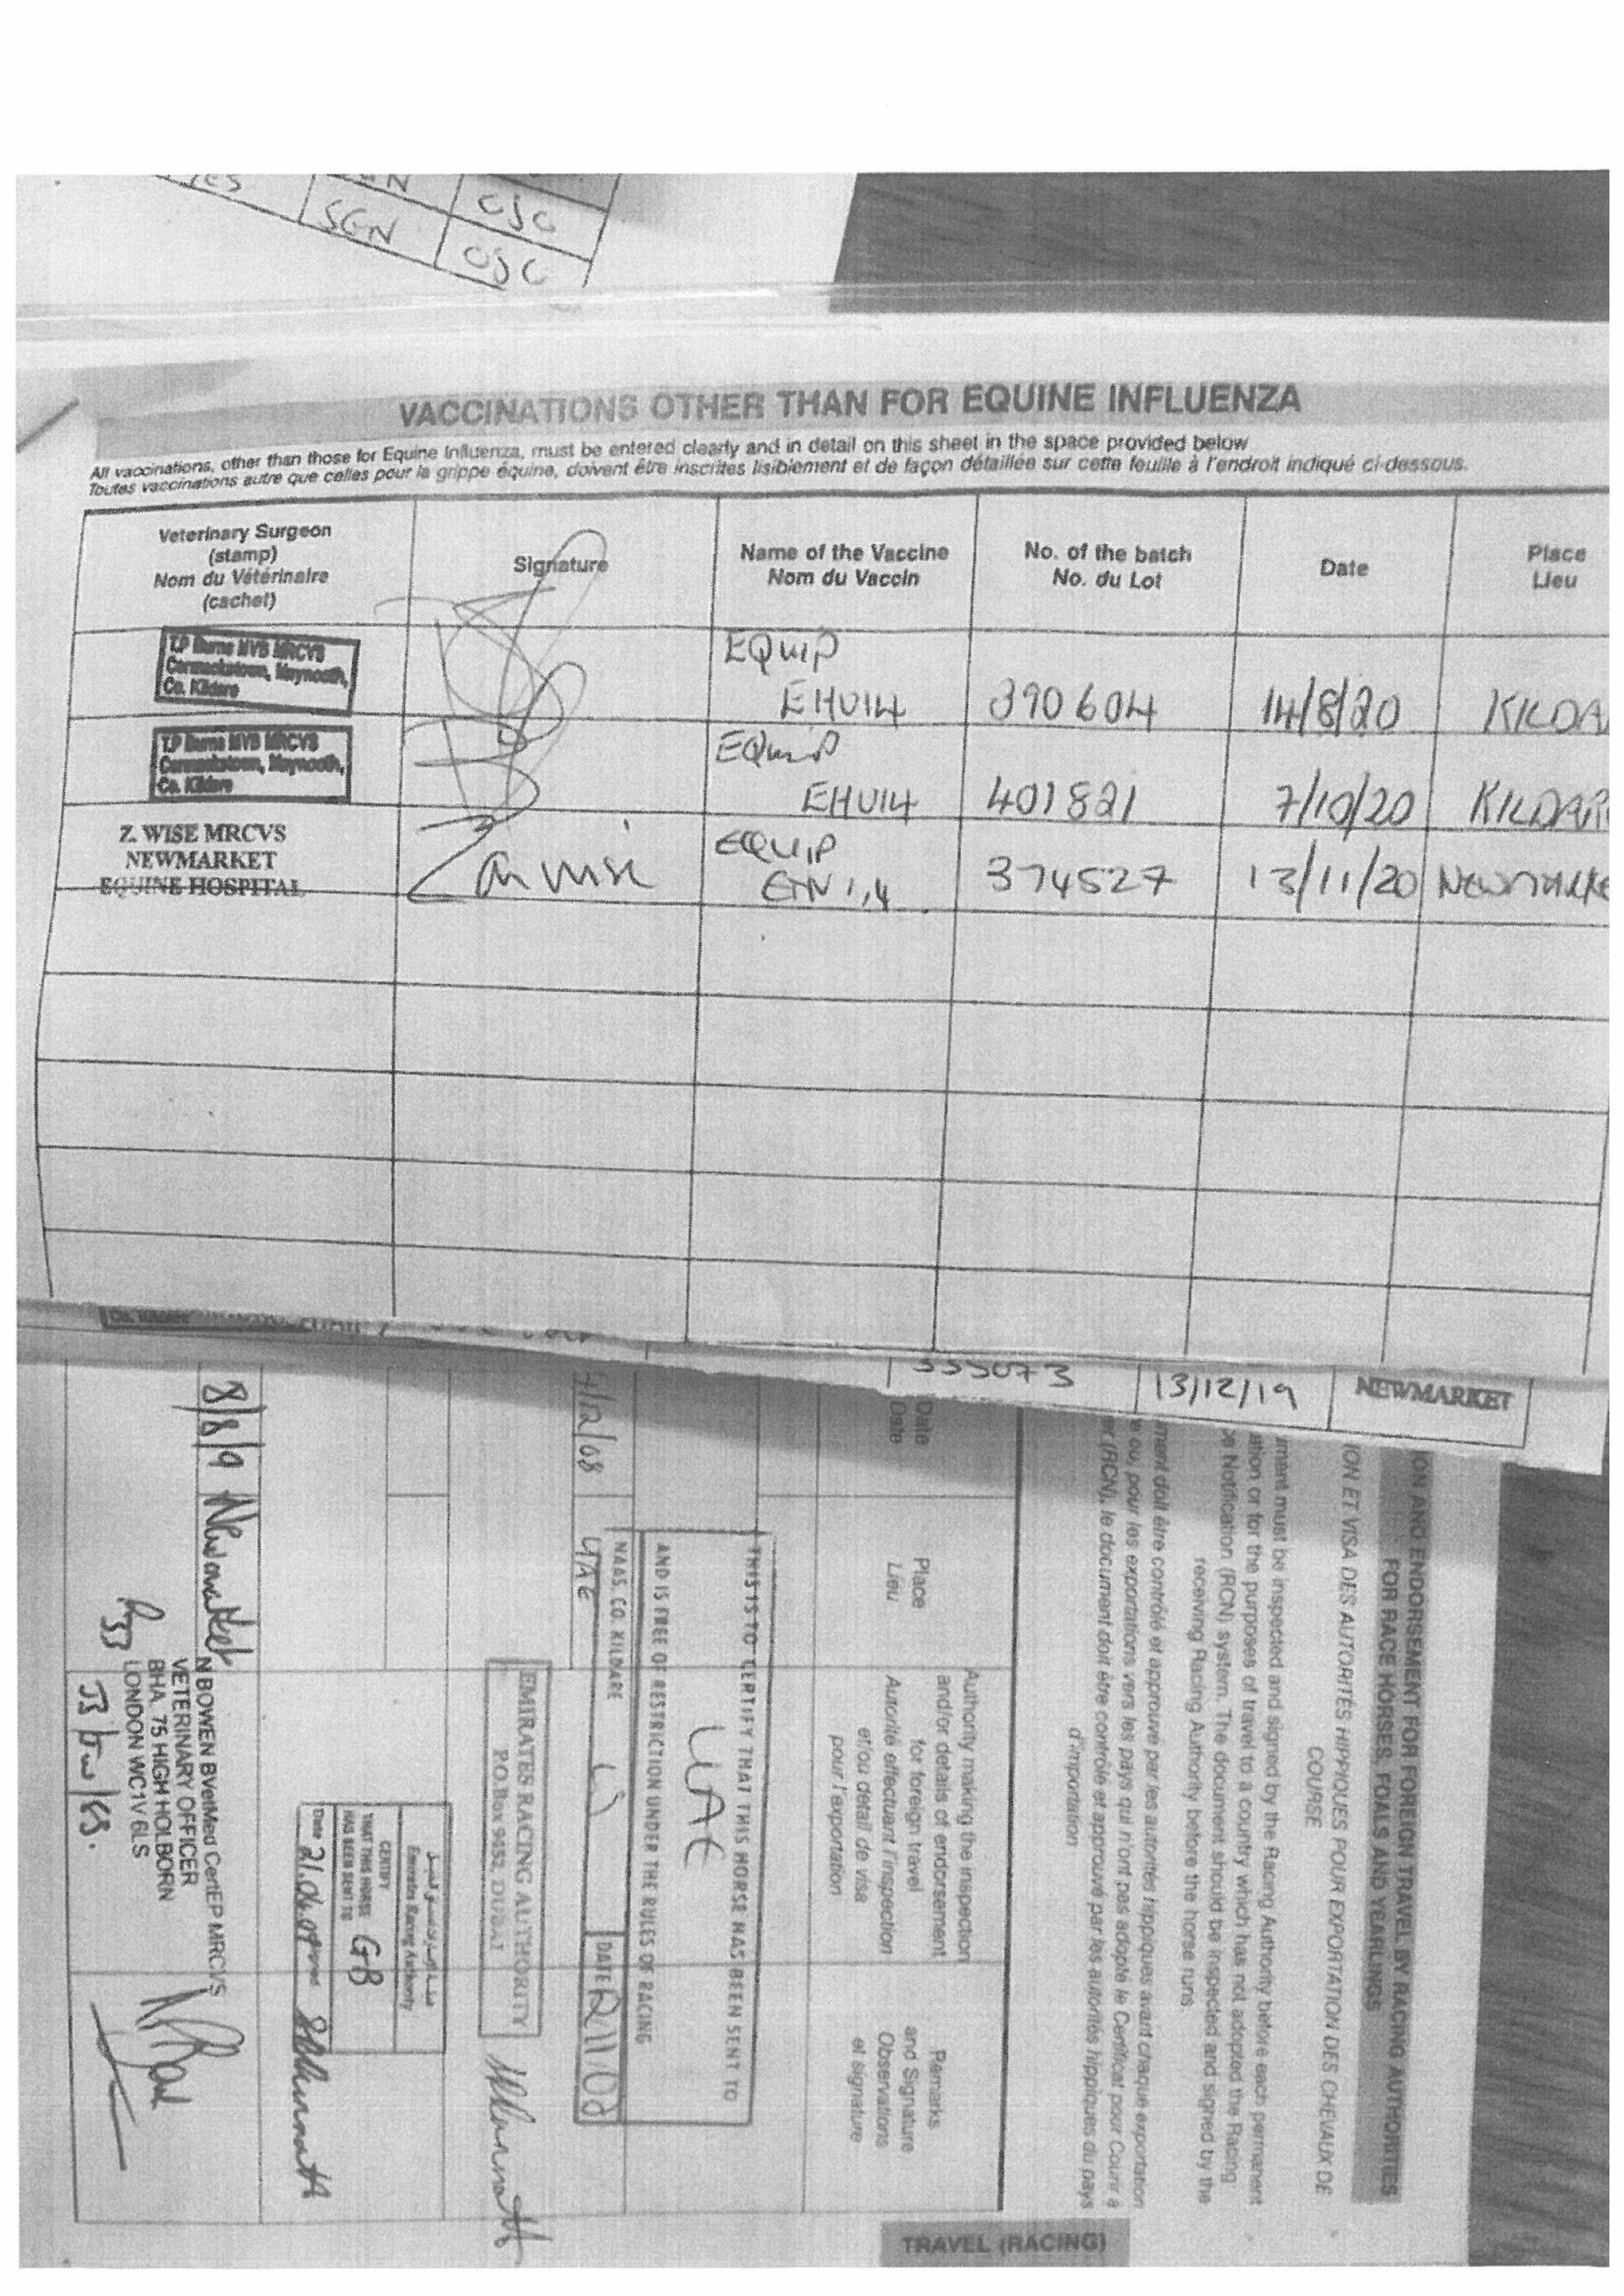 SGN
CJC
CJC
VACCINATIONS OTHER THAN FOR EQUINE INFLUENZA
All vaccinations, other than those for Equine Influenza, must be entered clearly and in detail on this sheet in the space provided below
Toutes vaccinations autre que celles pour la grippe équine, doivent être inscrites lisiblement et de façon détaillée sur cette feuille à l'endroit indiqué ci-dessous.
Veterinary Surgeon
(stamp)
Nom du Vétérinaire
(cachet)
Signature
Name of the Vaccine
Nom du Vaccin
No. of the batch
No. du Lot
Date
Place
Lieu
T.P Burns MVB MRCVS
Carmackstown, Maynooth,
Co. Kildare
EQUIP
EHV14 390604 14/8/20 KILDA
T.P Burns MVB MRCVS
Carmackstown, Maynooth,
Co. Kildare
EQUIP
EHV14 401821 7/10/20 KILDAR
Z. WISE MRCVS
NEWMARKET
EQUINE HOSPITAL
EQUIP
EHV 1,4 374527 13/11/20 NEWMARKE
335073 13/12/19 NEWMARKET
ION AND ENDORSEMENT FOR FOREIGN TRAVEL BY RACING AUTHORITIES
FOR RACE HORSES, FOALS AND YEARLINGS
ION ET VISA DES AUTORITÉS HIPPIQUES POUR EXPORTATION DES CHEVAUX DE
COURSE
ument must be inspected and signed by the Racing Authority before each permanent
ation or for the purposes of travel to a country which has not adopted the Racing
ce Notification (RCN) system. The document should be inspected and signed by the
receiving Racing Authority before the horse runs
ment doit être contrôlé et approuvé par les autorités hippiques avant chaque exportation
e ou, pour les exportations vers les pays qui n'ont pas adopté le Certificat pour Courir à
er (RCN), le document doit être contrôlé et approuvé par les autorités hippiques du pays
d'importation
Date
Date
Place
Lieu
Authority making the inspection
and/or details of endorsement
for foreign travel
Autorité effectuant l'inspection
et/ou détail de visa
pour l'exportation
Remarks
and Signature
Observations
et signature
THIS IS TO CERTIFY THAT THIS HORSE HAS BEEN SENT TO
UAE
AND IS FREE OF RESTRICTION UNDER THE RULES OF RACING
NAAS, CO. KILDARE
DATE
/12/08 UAE
EMIRATES RACING AUTHORITY
P.O.Box 9452, DUBAI
Emirates Racing Authority
CERTIFY
THAT THIS HORSE
HAS BEEN SENT TO GB
Date 21.04.09
8/8/9 Newmarket
N BOWEN BVetMed CertEP MRCVS
VETERINARY OFFICER
BHA 75 HIGH HOLBORN
LONDON WC1V 6LS
TRAVEL (RACING)